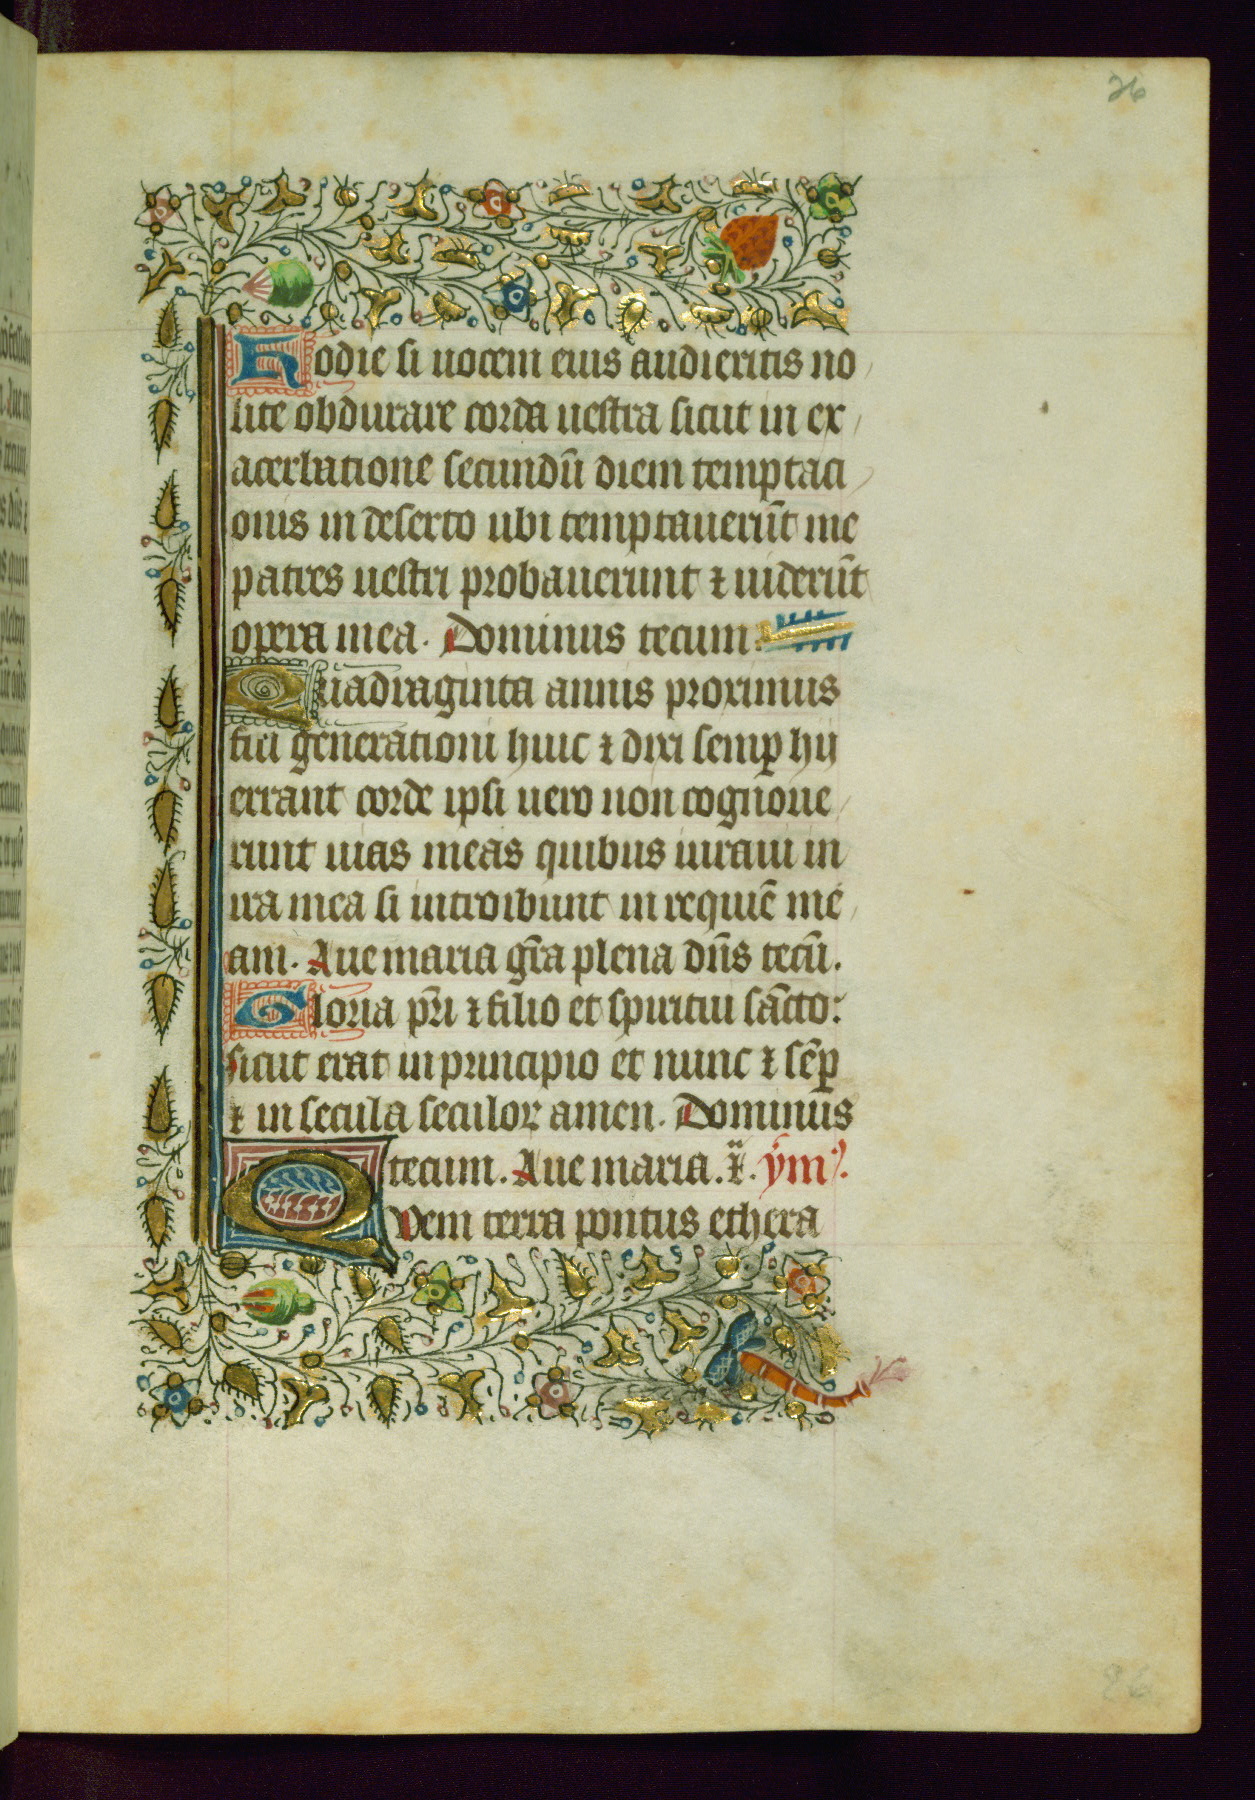 26
Hodie si uocem eius audieritis no
lite obdurare corda uestra sicut in ex
acerbatione secundū diem temptaci
onis in deserto ubi temptauerūt me
patres uestri probauerunt ⁊ uiderūt
opera mea. Dominus tecum.
Quadraginta annis proximus
fui generationi huic ⁊ dixi semꝑ hij
errant corde ipsi uero non cognoue
runt uias meas quibus iuraui in
ira mea si introibunt in requiē me
am. Aue maria gr̄a plena dn̄s tecū.
Gloria pr̄i ⁊ filio et spiritui sāncto:
sicut erat in principio et nunc ⁊ sēꝑ
⁊ in secula seculoꝝ amen. Dominus
tecum. Aue maria. ⁊. ym̄
Quem terra pontus ethera
26